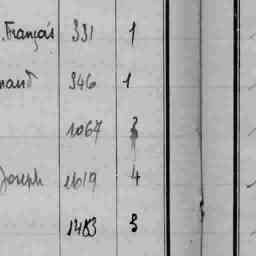 . François 331 1
nand 346 1
1067 3
Joseph 1619 4
1483 5